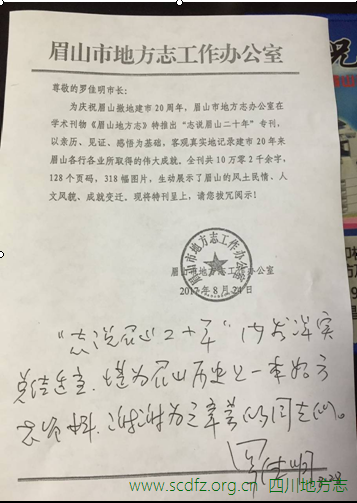 眉山市地方志工作办公室
尊敬的罗佳明市长：
为庆祝眉山撤地建市20周年，眉山市地方志办公室在
学术刊物《眉山地方志》特推出“志说眉山二十年”专刊，
以亲历、见证、感悟为基础，客观真实地记录建市20年来
眉山各行各业所取得的伟大成就。全刊共10万零2千余字，
128个页码，318幅图片，生动展示了眉山的风土民情、人
文风貌、成就变迁。现将特刊呈上，请您拔冗阅示！
眉山市地方志工作办公室
2017年8月24日
“志说眉山二十年”内容详实
总结适宜，堪为眉山历史之一本好方
志资料，谢谢为之辛苦的同志们。
罗佳明
www.scdfz.org.cn 四川地方志